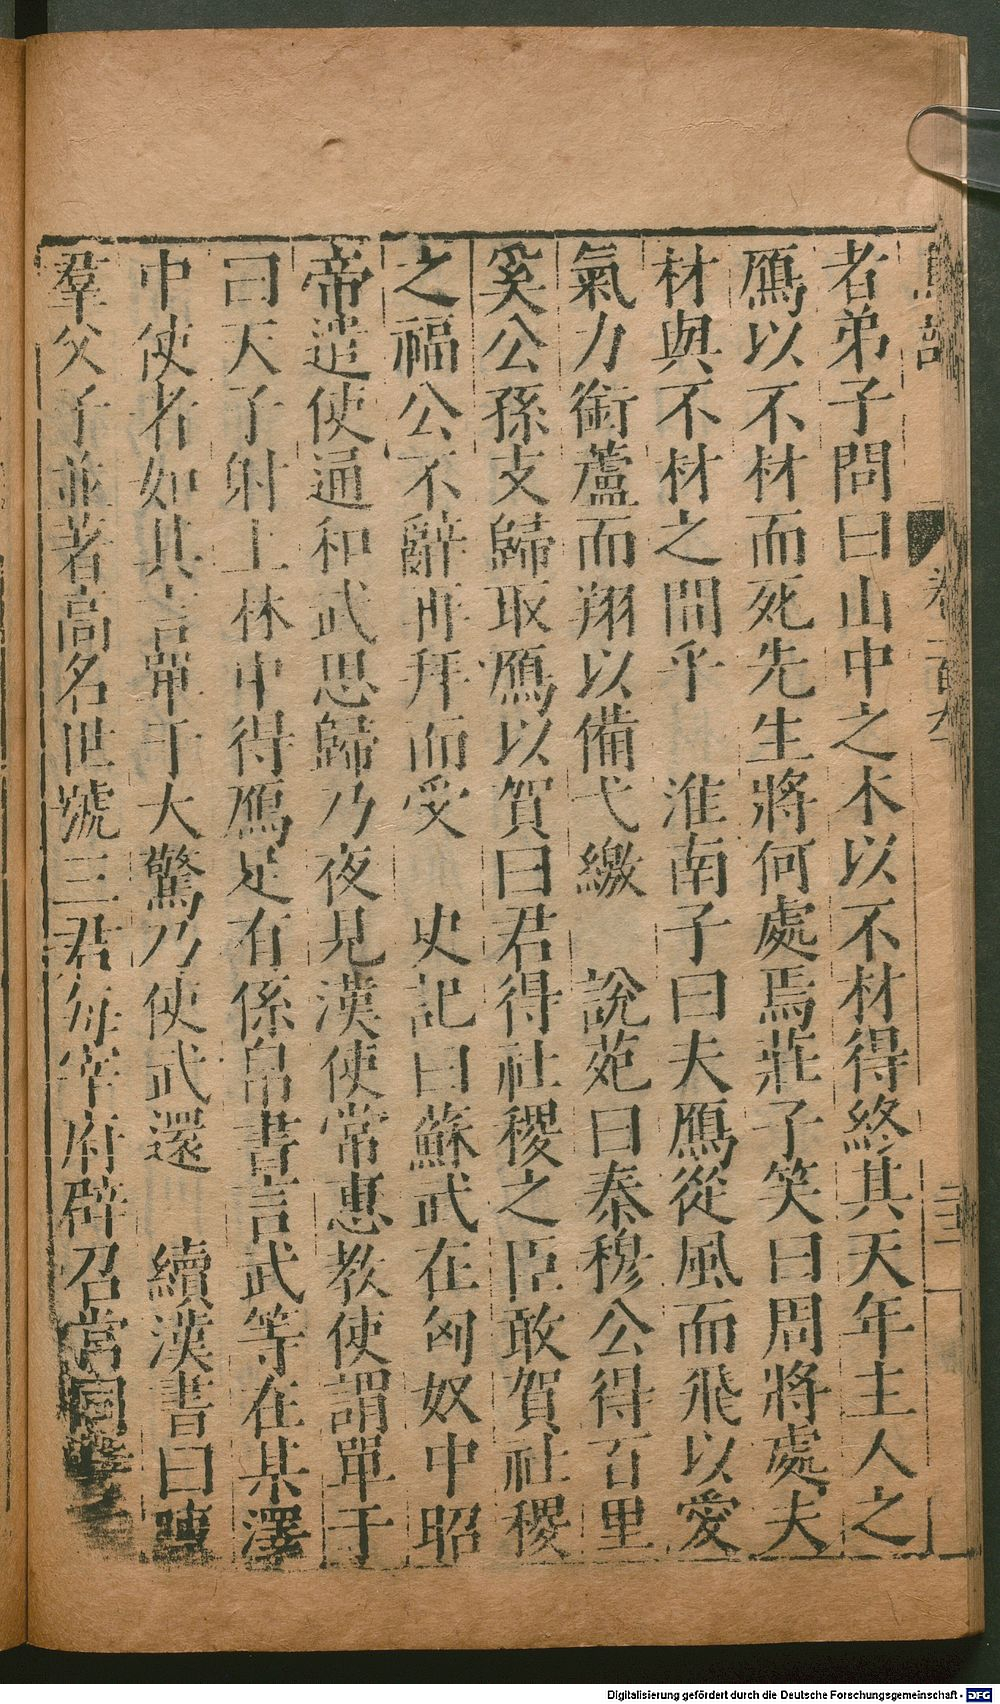 卷一百
者弟子問曰山中之木以不材得終其天年主人之
鴈以不材而死先生將何處焉莊子笑曰周將處夫
材與不材之間乎 淮南子曰夫鴈從風而飛以愛
氣力銜蘆而翔以備弋繳 說苑曰秦穆公得百里
奚公孫支歸取鴈以賀曰君得社稷之臣敢賀社稷
之福公不辭再拜而受 史記曰蘇武在匈奴中昭
帝遣使通和武思歸乃夜見漢使常惠教使謂單于
曰天子射上林中得鴈足有係帛書言武等在某澤
中使者如其言單于大驚乃使武還 續漢書曰陳
羣父子並著高名世號三君每宰府辟召常同
Digitalisierung gefördert durch die Deutsche Forschungsgemeinschaft - DFG